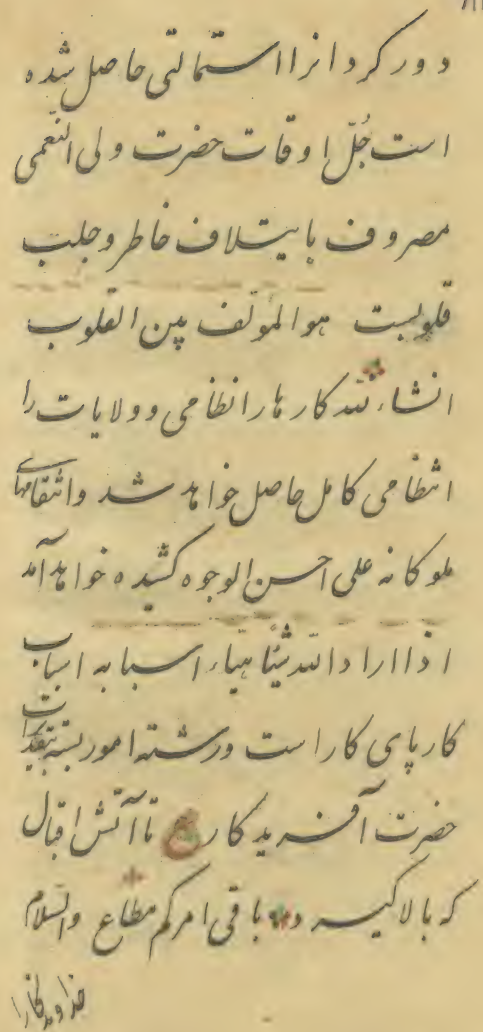 دور کردانرا استمالتی حاصل شده
است جُلّ اوقات حضرت ولی النّعمی
مصروف بایتلاف خاطر و جلب
قلوبست هو المؤلف بین القلوب
انشاءالله کارها را نظامی و ولایات را
انتظامی کامل حاصل خواهد شد و انتقامهای
ملوکانه علی احسن الوجوه کشیده خواهد آمد
اذا اراد الله شیئا هیّاء اسبابه اسباب
کار پای کار است و رشته امور بسته بتقدیرات
حضرت آفریدکار ع تا آتش اقبال
که بالا گیرد باقی امرکم مطاع والسّلام